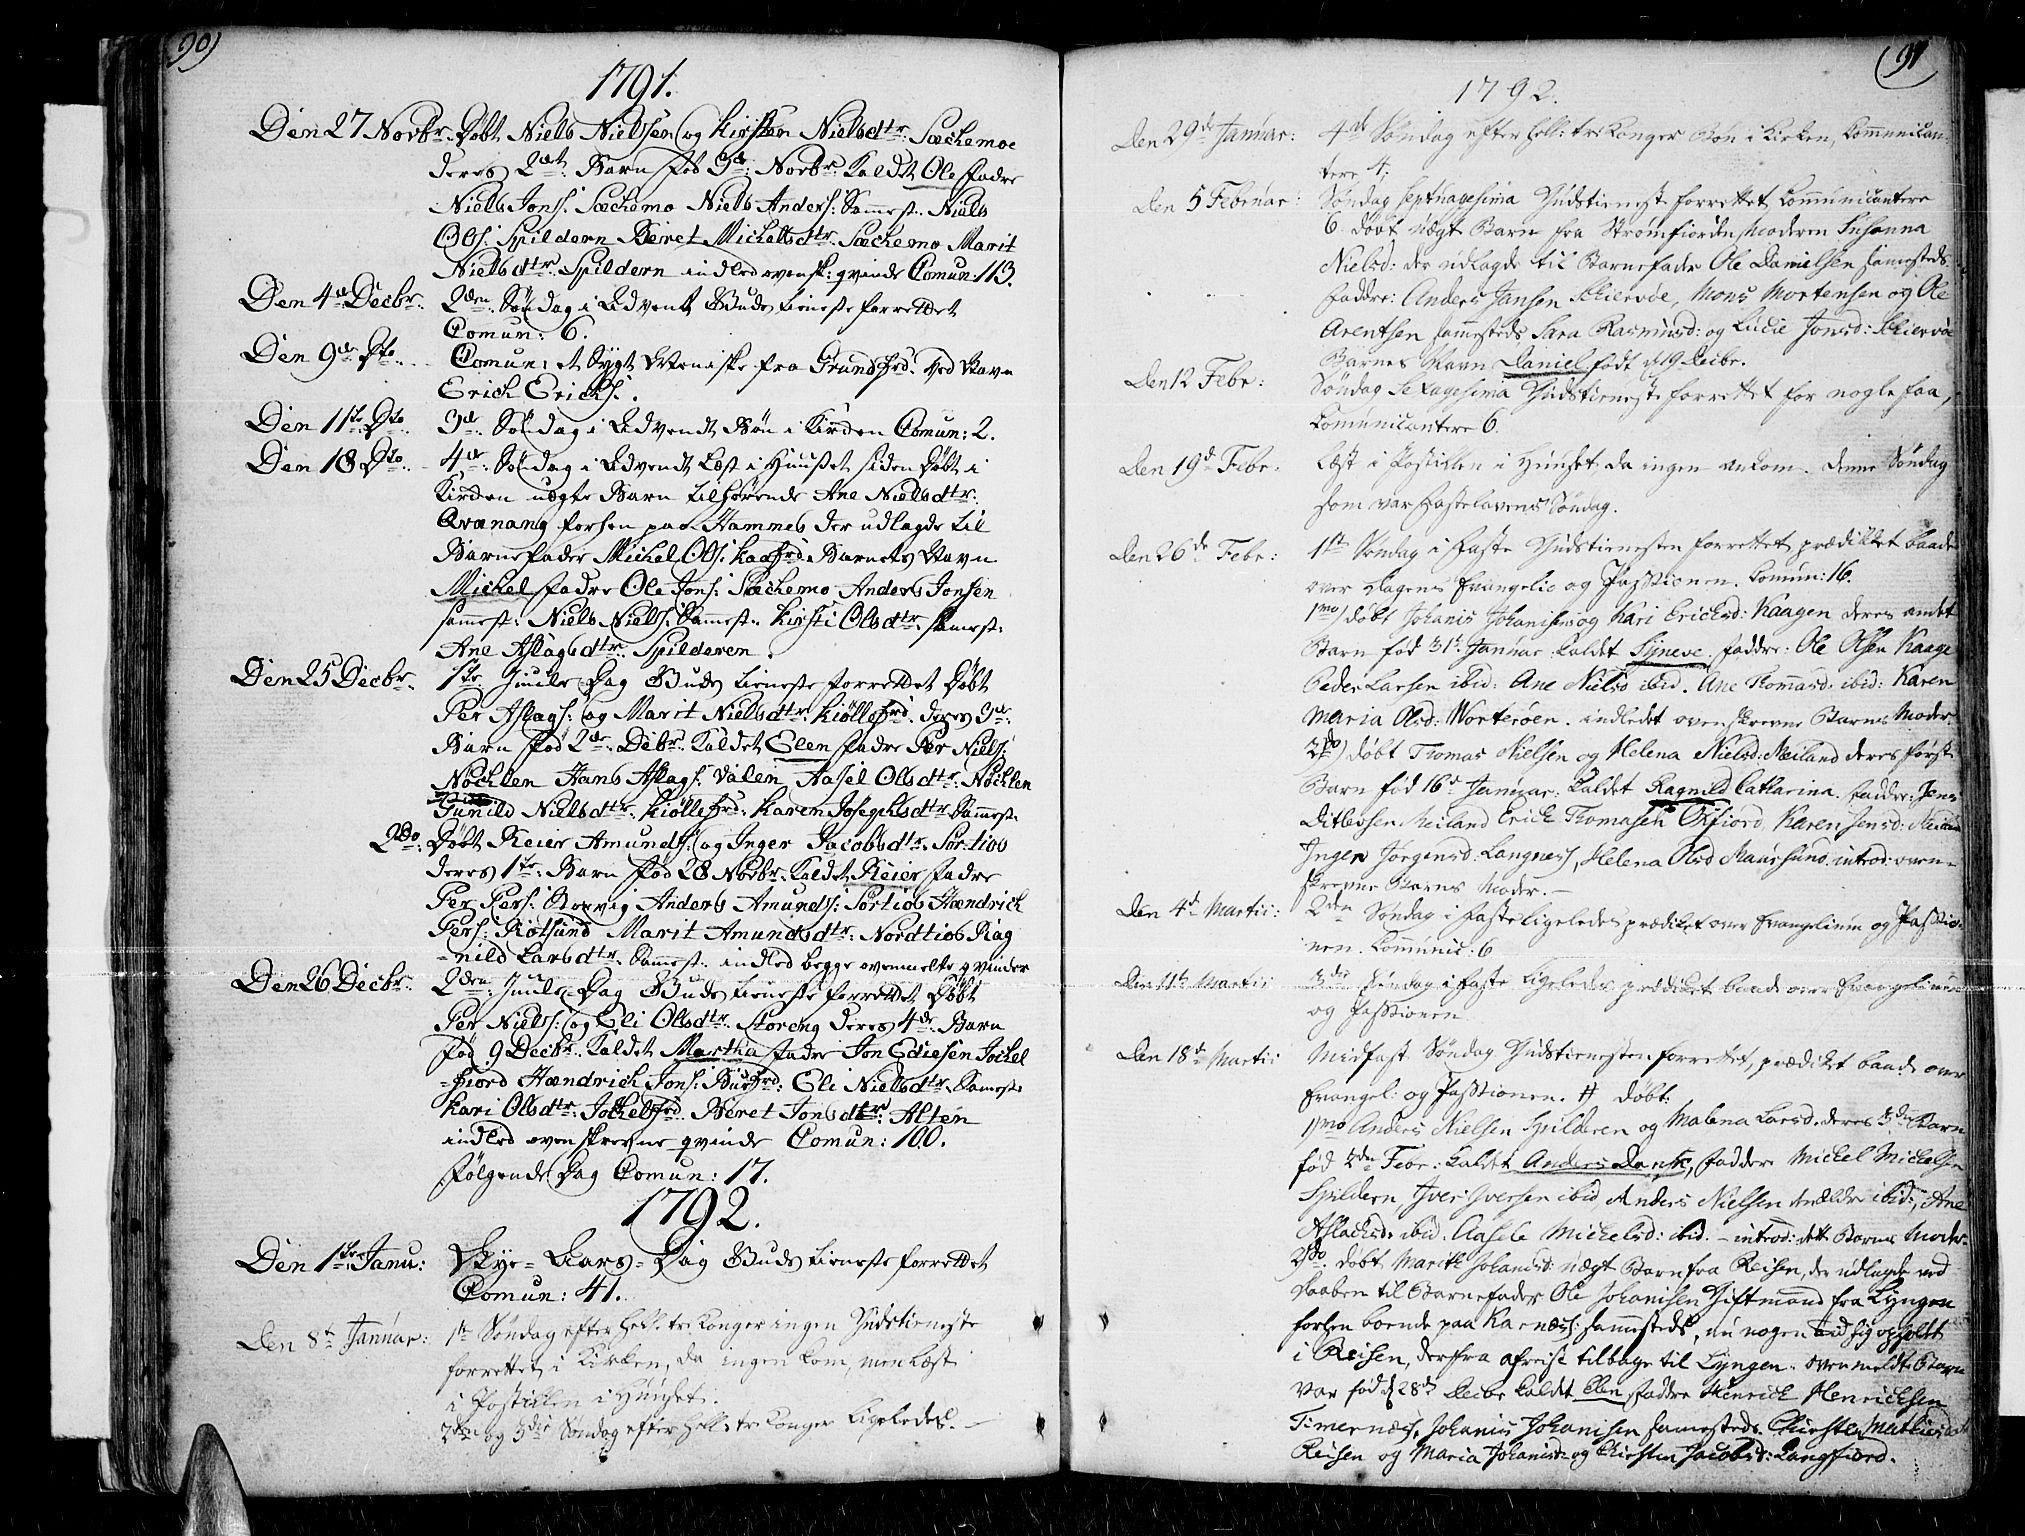 90)
1791.
Den 27 Novbr. Døbt Niels Nielssen og Kirsten Nielsdtr. Sæchemoe
deres 2det Barn fød 3de Novbr. Kaldet Ole fadre
Niels Jons: Sæchemo Niels Anders: Sammest. Niels
Ols: Spildern Beret Michelsdtr. Sæchemo Marit
Nielsdtr. Spildern indled ovensk: qvinde Comun: 113.
Den 4de Decbr. 2den Søndag i Advent Guds tieneste forrettet
Comun: 6.
Den 9de Dto. Comun: et Sygt Meniske fra Grundfrd. Ved Navn
Erich Erichs:.
Den 11te Dto. 3de Søndag i Advendt Bøn i Kirken Comun: 2.
Den 18 Dto. 4de Søndag i Advendt Læst i Huuset siden Døbt i
Kirken uægte Barn tilhørende Ane Nielsdtr.
Qvænang forhen paa Hammes der udlagde til
Barnefader Michel Ols: Kaafrd. Barnets Navn
Michel fadre Ole Jons: Sæchemo Anders Jonsen
sammest: Niels Niels: Sammest. Kirsti Olsdtr. sammest:
Ane Aslagsdtr. Spilderen.
Den 25 Decbr. 1ste Juule Dag Guds tieneste forrettet Døbt
Per Aslags: og Marit Nielsdtr. Kiøllefrd. deres 3de
Barn fød 2de Debr. Kaldet Elen fadre Per Niels:
Nochlen Hans Aslags: Valen Aasel Olsdtr. Nochlen
Gunild Nielsdtr. Kiøllefrd. Karen Josephsdtr. Sammest.
2do. Døbt Reier Amunds: og Inger Jacobsdtr. Sørtios
deres 1ste Barn fød 28 Novbr. Kaldet Reier fadre
Per Pers: Anders Amunds: Sørtios Hændrich
Pers: Rotsund Marit Amundsdtr: Nordtios Rag
=nild Larsdtr. Sammest: indled begge ovenmelte qvinder
Den 26 Decbr. 2den Juule Dag Guds tieneste forrettet Døbt
Per Niels: og Eli Olsdtr. Storeng deres 4de Barn
fød 9 Decbr. Kaldet Martha fadre Jon Ediesen Jockel
=fiord Hændrich Jons: Eli Nielsdtr. Sammest:
Kari Olsdtr. Jockelfrd. Beret Jonsdtr. Alten
indled ovenskrevne qvinde Comun: 100.
følgende Dag Comun: 17.
1792.
Den 1ste Janu: Nye=Aars=Dag Guds tieneste forrettet
Comun: 41.
Den 8de Januar: 1ste Søndag efter Hell: tre Konger ingen Gudstieneste
forrettet i Kirken, da ingen kom, men læst
i Postillen i Huuset.
2den og 3die Søndag efter Hell: tre Konger Ligeledes. —
(91
1792.
Den 29de Januar: 4de Søndag efter Hell: tre Konger Bøn i Kirken, Communican=
tere 4,
Den 5 Februar: Søndag Septuagesima Gudstieneste forrettet Communicantere
6. døbt uægt Barn fra Strømfiorden, Moderen Susanna
Nielsd: der udlagde til Barnefader Ole Danielsen samesteds.
faddre: Anders Jansen Schiervøe, Mons Mortensen og Ole
Arentsen samesteds Sara Rasmusd: og Lucie Jonsd: Schiervøe
Barnes Navn Daniel født d 19 Decbr.
Den 12 Febr: Søndag Sexagesima Gudstieneste forrettet for nogle faa,
Communicantere 6.
Den 19de Febr: Læst i Postillen i Huuset da ingen ankom. denne Søndag
som var Fastelavens Søndag.
Den 26de Febr: 1ste Søndag i Faste Gudstienesten forrettet, prædiket baade
over Dagens Evangelio og Passionen. Comun: 16.
1mo) døbt Johanis Johanisens og Kari Ericksd: Kaagen deres andet
Barn fød 31te Januar kaldet Syneve. faddre: Ole Olsen Kaage
Peder Larsen ibid: Ane Nielsd ibid. Ane Thomasd: ibid: Karen
Maria Olsd: Worterøen. indledet ovenskrevne Barns Moder.
2do) døbt Thomas Nielsen og Helena Nielsd: Meiland deres første
Barn fød 16de Januar: kaldet Ragnild Catharina. faddre: Jens
Ditlevsen Meiland Erick Thomasen Oxfiord, Karen Jensd: Meiland
Inger Jørgensd: Langness, Helena Olsd Maursund. introd: oven=
skrevne Barns Moder. —
Den 4de Martii: 2den Søndag i Faste ligeledes prædiket over Evangelium og Passio=
nen. Communic: 6
Den 11te Martii: 3die Søndag i Faste ligeledes prædiket baade over Evangelium
og Passionen
Den 18de Martii: Midfast Søndag Gudstienesten forrettet, prædiket baade over
Evangel: og Passionen. døbt:
1mo Anders Nielsen Spilderen og Malena Larsd. deres 3de Barn
fød 2den Febr: kaldet Anders Dank, faddre Mickel Mickelsen
Spildern, Iver Iversen ibid, Anders Nielsen ibid:, Ane
Aslacksd: ibid. Aasele Mickelsd: ibid. — introd: dette Barns Moder.
2do. døbt Marith Johanisd: uægt Barn fra Reisen, der udlagde ved
Daaben til Barnefader Ole Johanisen Giftmand fra Lyngen
forhen boende paa Karnæss: sammesteds, nu nogen tid sig opholdt
i Reisen, derfra afreist tilbage til Lyngen. ovenmeldte Barn
var fød d 28de Decbr kaldet Elen, faddre Henrick Henricksen
Timernæss, Johanis Johanisen samesteds Chirste Mathisdtr
Reisen og Maria Johanisd: og Chirsten Jacobsd: Langfiord.